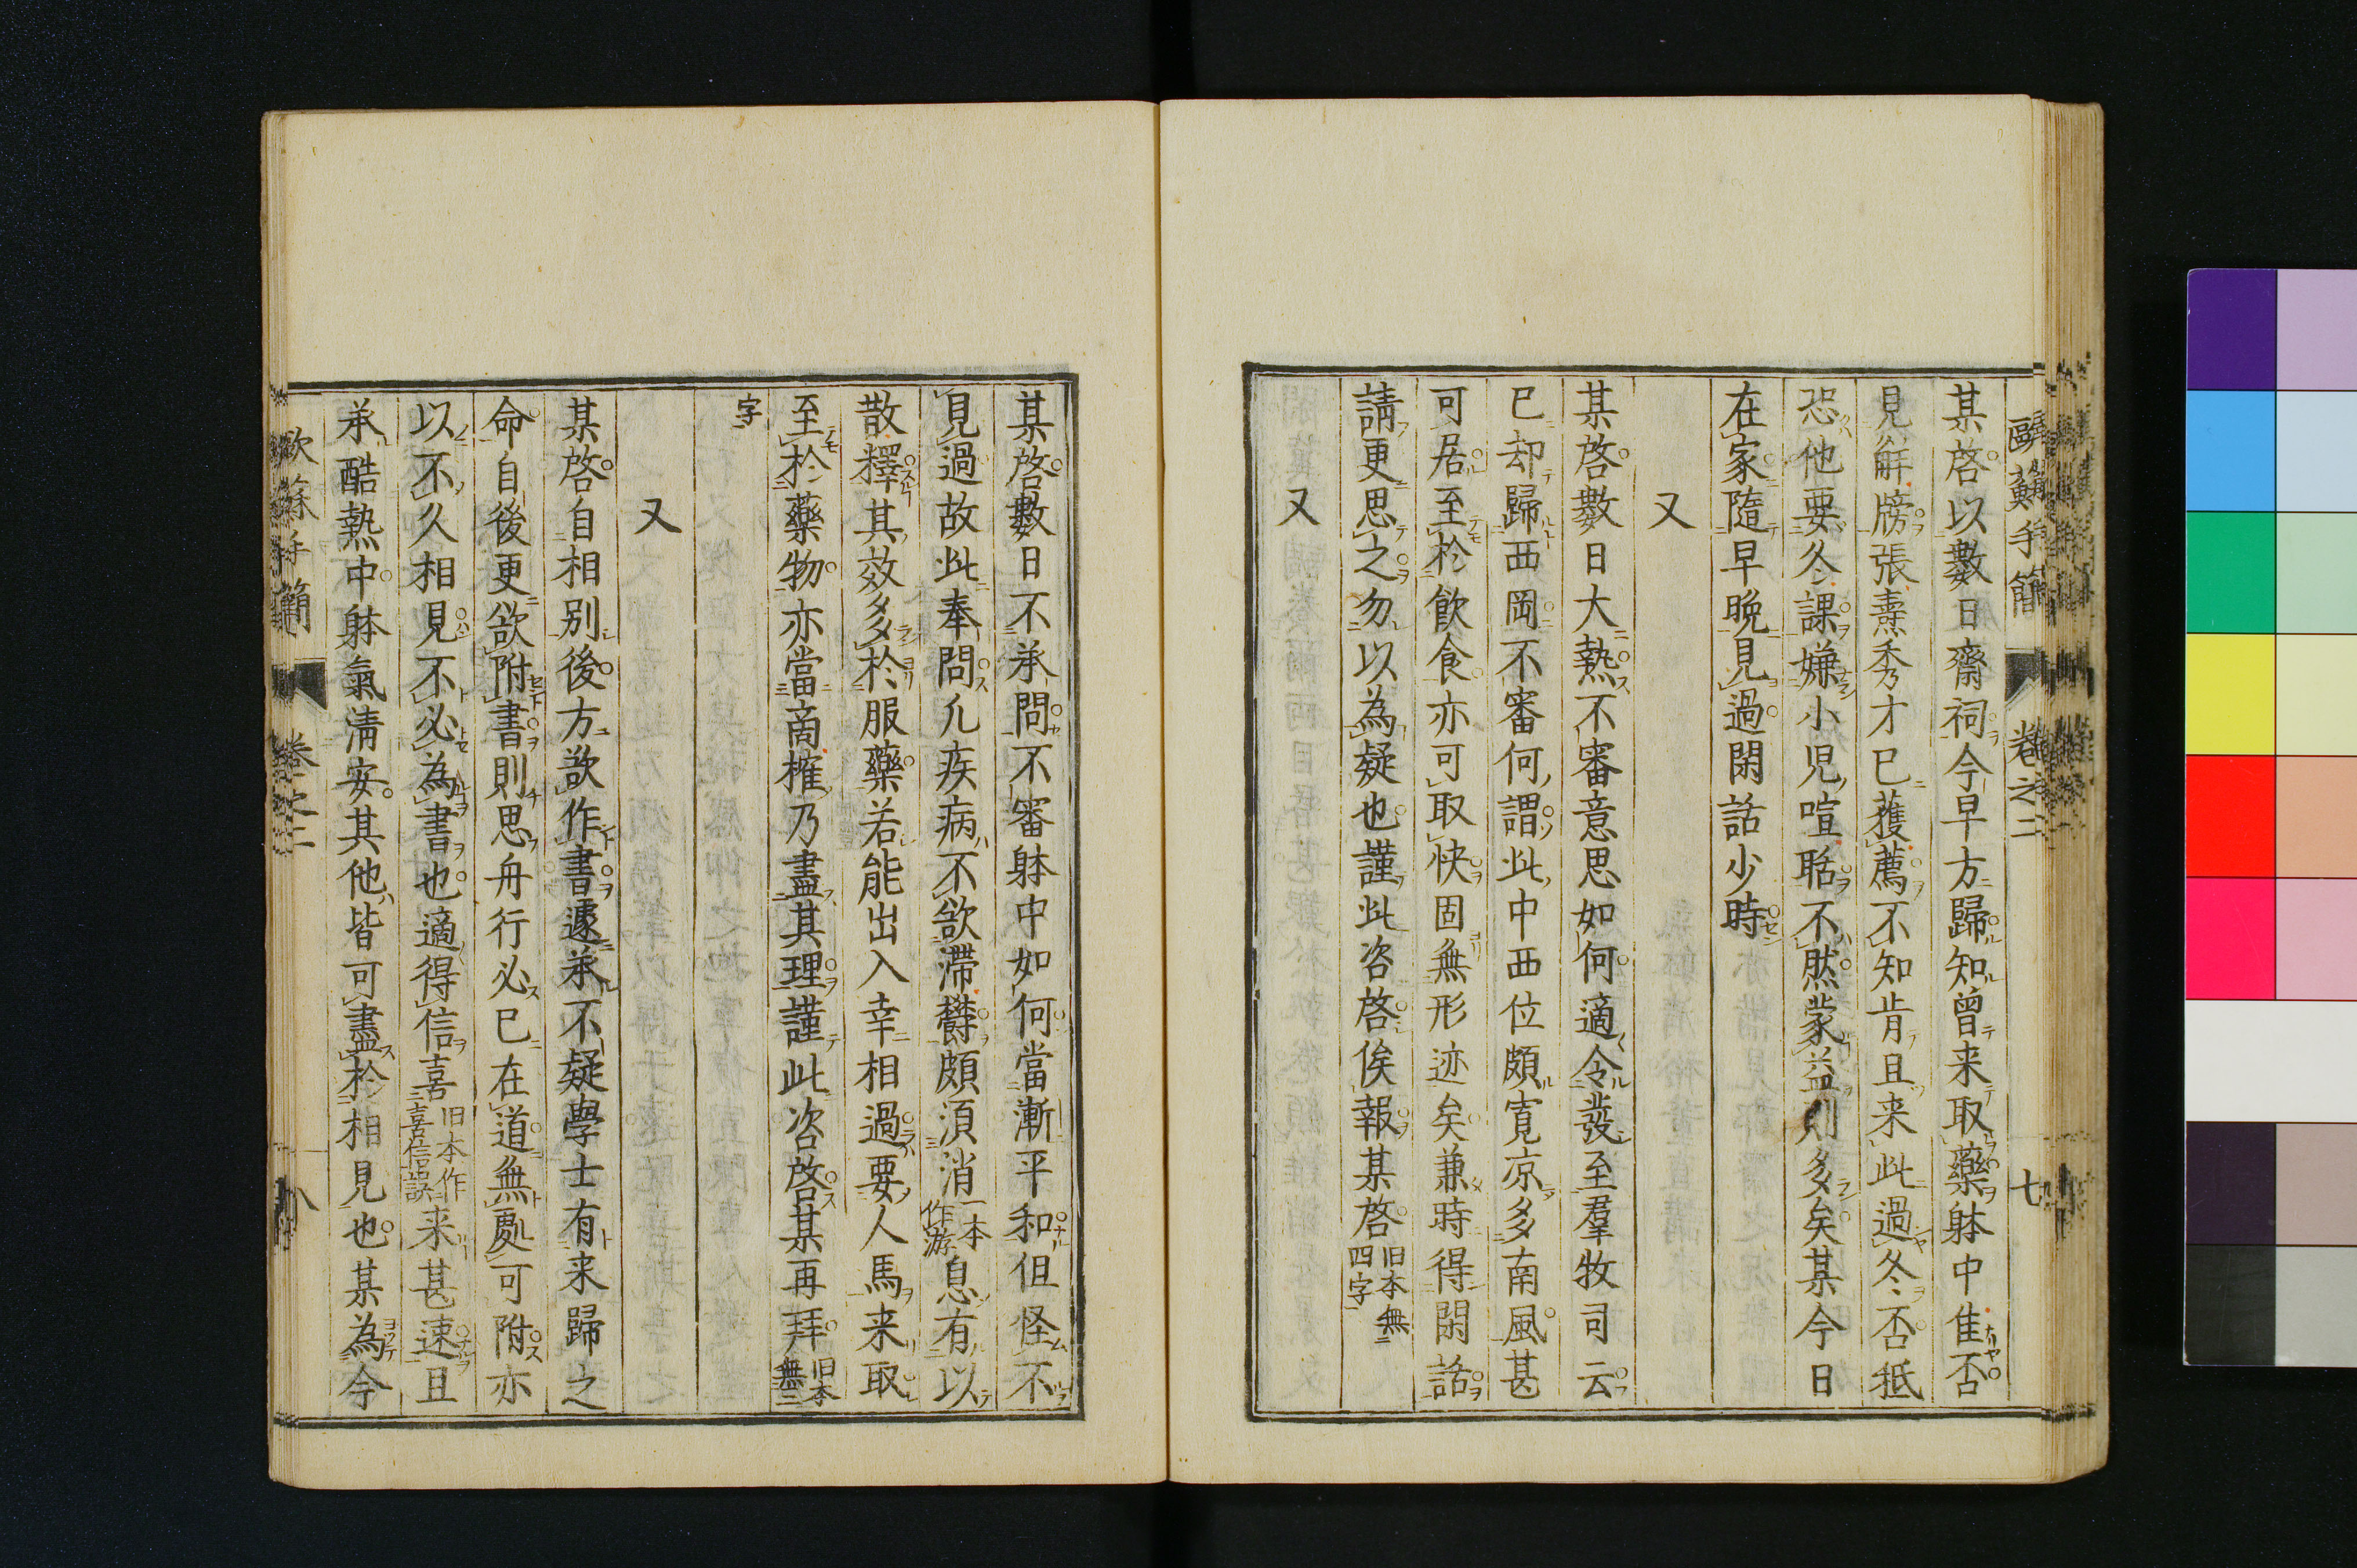 歐蘇手簡 卷之二 七
某啓以數日齋祠今早方歸知曾来取藥躰中佳否
見觧牓張燾秀才已獲薦不知肯且来此過冬否抵
恐他要久課嫌小児喧聒不然蒙益則多矣某今日
在家隨早晩見過閑話少時
又
某啓數日大熱不審意思如何適令發至羣牧司云
已却歸西岡不審何謂此中西位頗寛凉多南風甚
可居至於飲食亦可取快固無形迹矣兼時得閑話
請更思之勿以為疑也謹此咨啓俟報某啓旧本無四字
又
某啓數日不承問不審躰中如何當漸平和但怪不
見過故此奉問凢疾病不欲滯欝頗湏消一本作游息有以
散釋其效多於服藥若能出入幸相過要人馬来取
至於藥物亦當商搉乃盡其理謹此咨啓某再拜旧本無三
字
又
某啓自相别後方欲作書遽承不疑學士有来歸之
命自後更欲附書則思舟行必已在道無處可附亦
以不久相見不必為書也適得信喜旧本作喜信誤来甚速且
承酷熱中躰氣清安其他皆可盡於相見也某為今
歐蘇手簡 卷之二 八